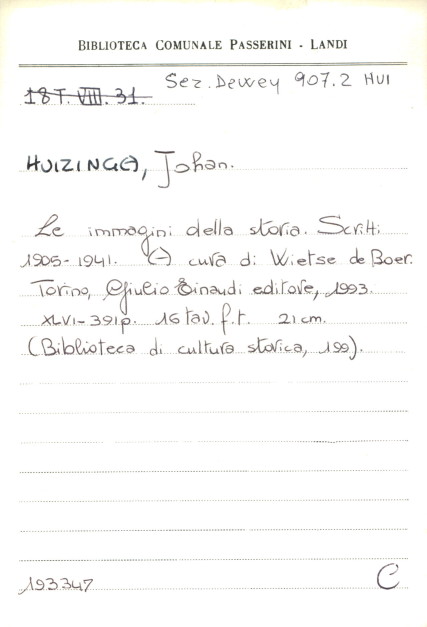 BIBLIOTECA COMUNALE PASSERINI - LANDI
Sez. Dewey 907.2 HUI
18T. VIII. 31.
HUIZINGA, Johan.
Le immagini della storia. Scritti
1905-1941. A cura di Wietse de Boer.
Torino, Giulio Einaudi editore, 1993.
XLVI-391p. 16 tav. f.t. 21 cm.
(Biblioteca di cultura storica, 199).
193347
C